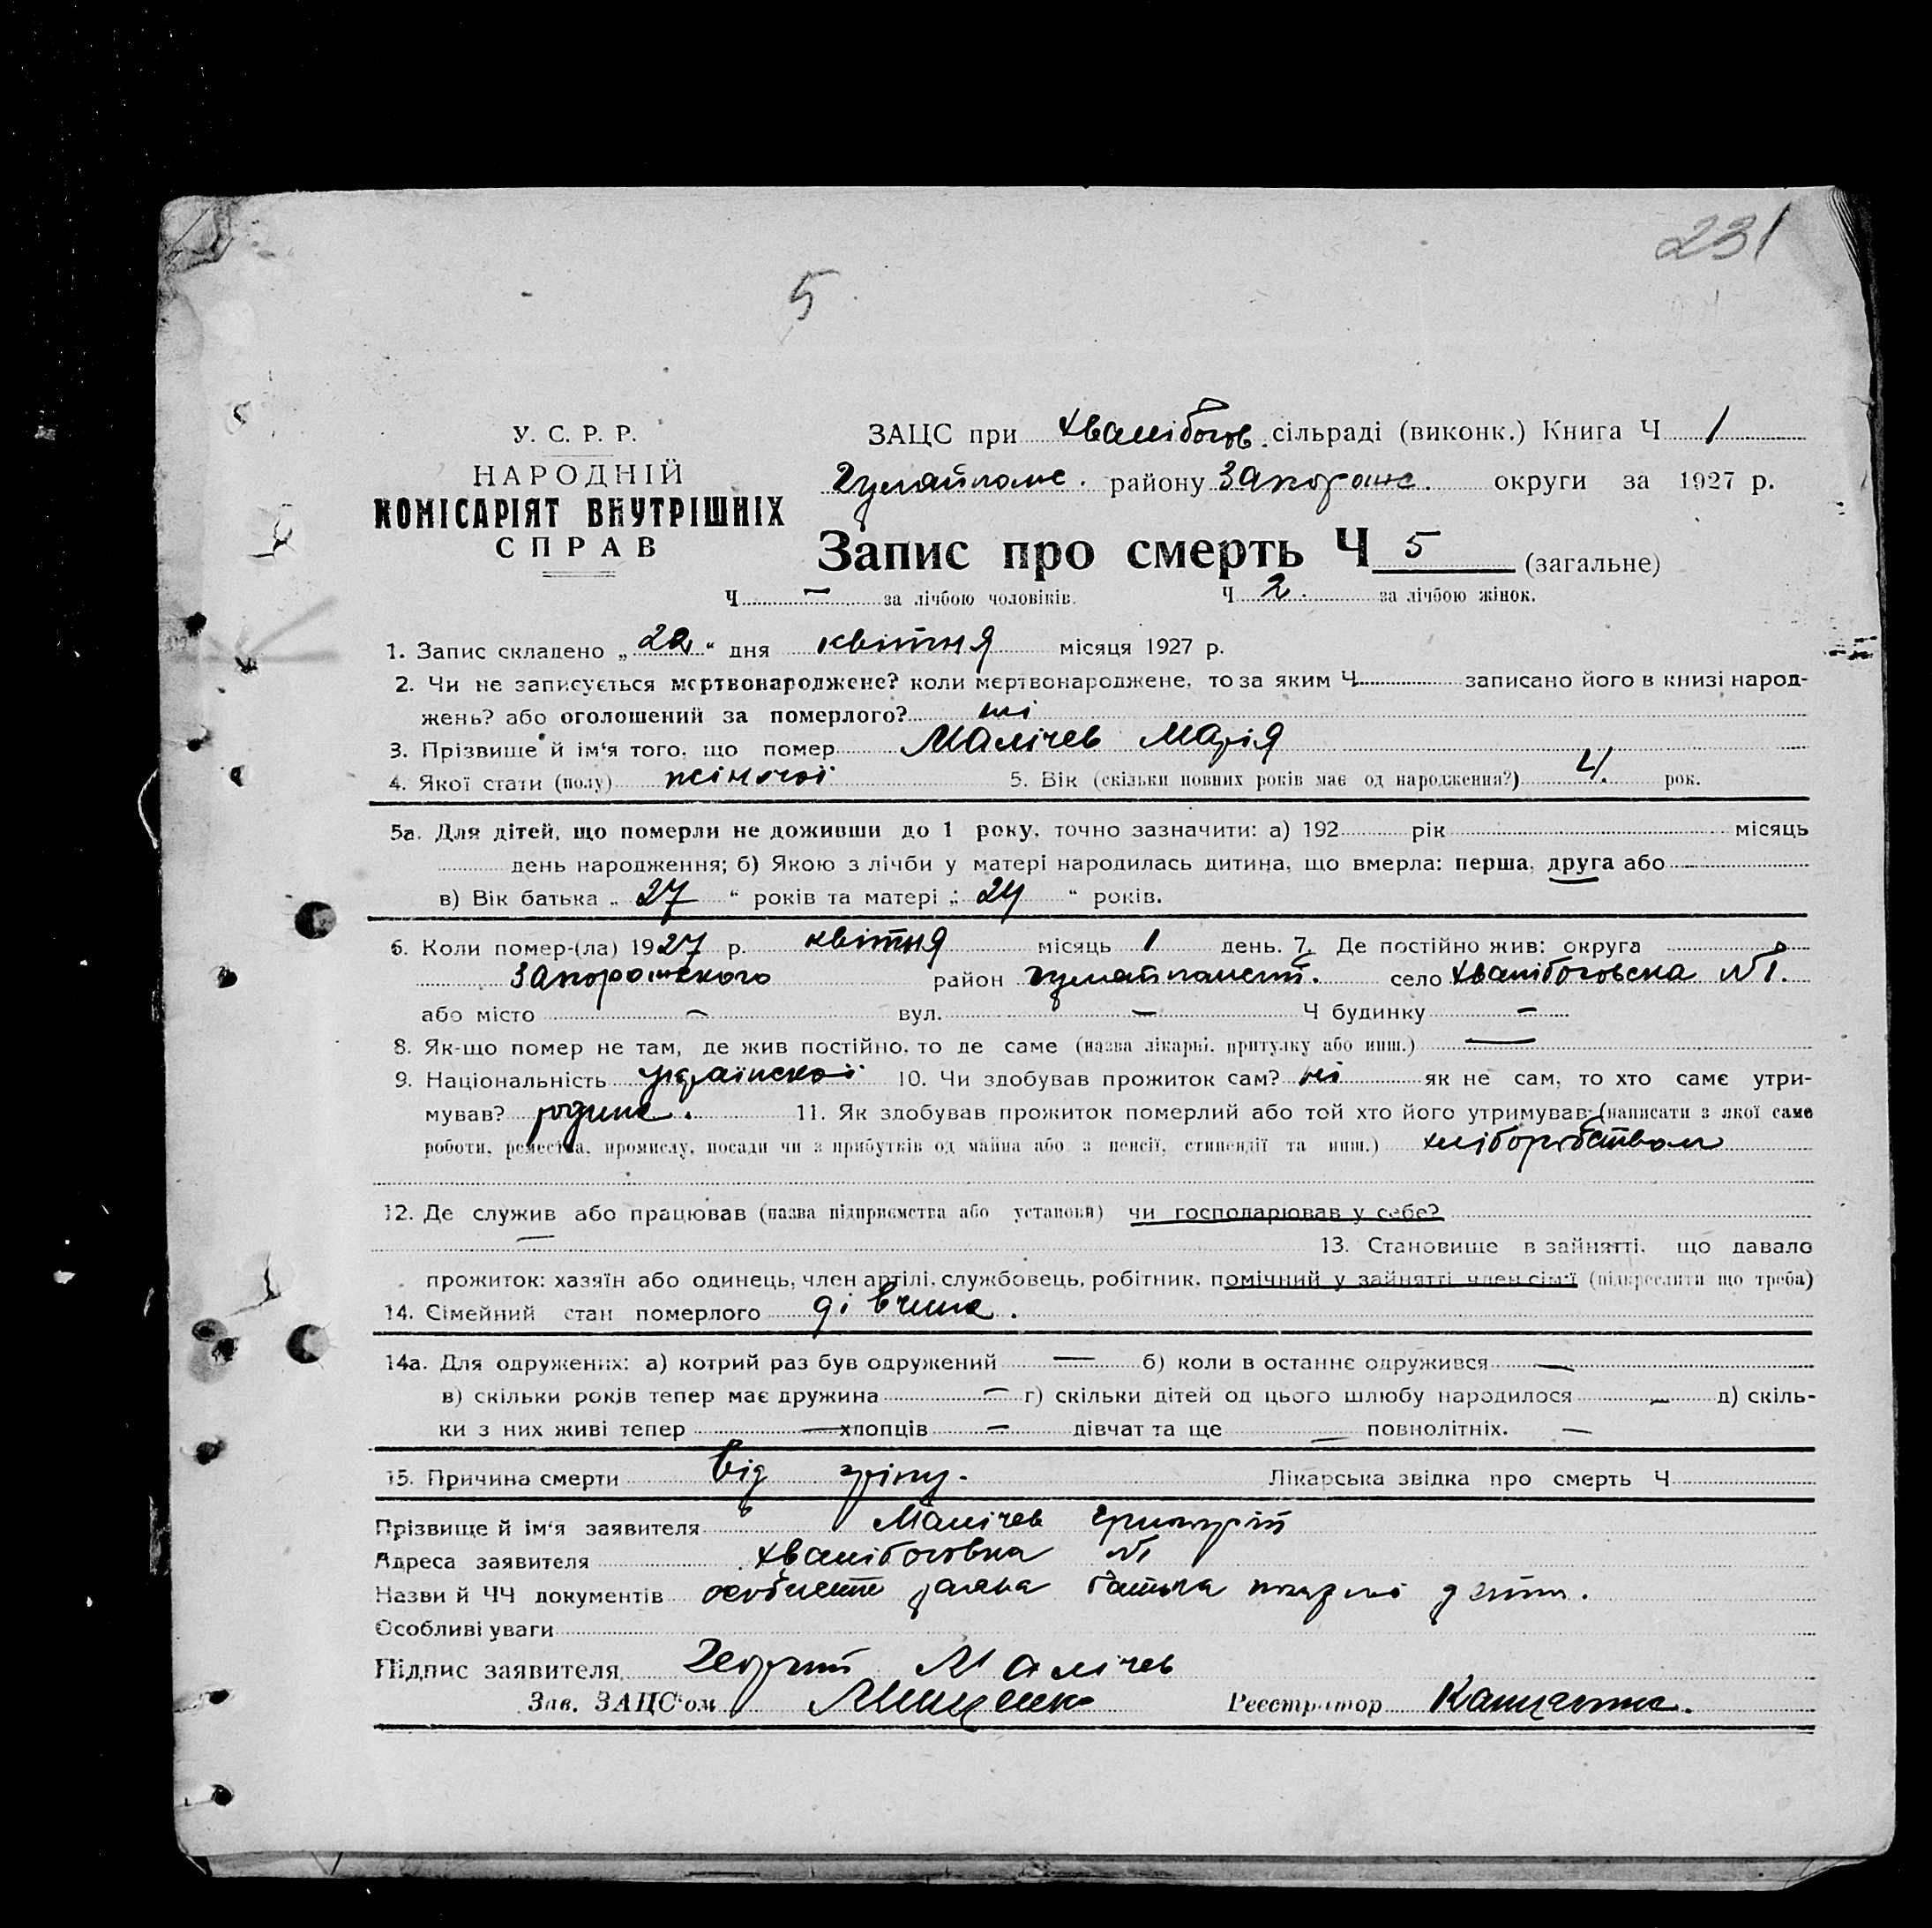 231
5
У. С. Р. Р.
НАРОДНІЙ
КОМІСАРІЯТ ВНУТРІШНІХ
СПРАВ
ЗАЦС при Хвалібогов. сільраді (виконк.) Книга Ч 1
Гуляйпольс. району Запорожс. округи за 1927 р.
Запис про смерть Ч 5 (загальне)
Ч — за лічбою чоловіків. Ч 2. за лічбою жінок.
1. Запис складено „22“ дня квітня місяця 1927 р.
2. Чи не записується мертвонароджене? коли мертвонароджене, то за яким Ч записано його в книзі народ-
жень? або оголошений за померлого? ні
3. Прізвище й ім'я того, що помер Малічев Марія
4. Якої стати (полу) жіночої 5. Вік (скільки повних років має од народження?) 4. рок.
5а. Для дітей, що померли не доживши до 1 року, точно зазначити: а) 192 рік місяць
день народження; б) Якою з лічби у матері народилась дитина, що вмерла: перша, друга або
в) Вік батька „27“ років та матері „24“ років.
6. Коли помер-(ла) 1927 р. квітня місяць 1 день. 7. Де постійно жив: округа
Запорожского район Гуляйпольськ. село Хвалібоговска №1.
або місто — вул. — Ч будинку —
8. Як-що помер не там, де жив постійно, то де саме (назва лікарні, притулку або инш.) —
9. Національність українскої 10. Чи здобував прожиток сам? ні як не сам, то хто саме утри-
мував? родина. 11. Як здобував прожиток померлий або той хто його утримував (написати з якої саме
роботи, ремества, промислу, посади чи з прибутків од майна або з пенсії, стипендії та инш.) хліборобством
12. Де служив або працював (назва підприємства або установи) чи господарював у себе?
— 13. Становище в зайнятті, що давало
прожиток: хазяїн або одинець, член артілі, службовець, робітник, помічний у зайнятті член сім'ї (підкреслити що треба)
14. Сімейний стан померлого дівчина.
14а. Для одружених: а) котрий раз був одружений — б) коли в останнє одружився —
в) скільки років тепер має дружина — г) скільки дітей од цього шлюбу народилося — д) скіль-
ки з них живі тепер — хлопців — дівчат та ще — повнолітніх. —
15. Причина смерти Від гріпу. Лікарська звідка про смерть Ч
Прізвище й ім'я заявителя Малічев
Адреса заявителя Хвалібоговка №1
Назви й ЧЧ документів заява батька
Особливі уваги
Підпис заявителя Георгий Малічев
Зав. ЗАЦС'ом Реєстратор